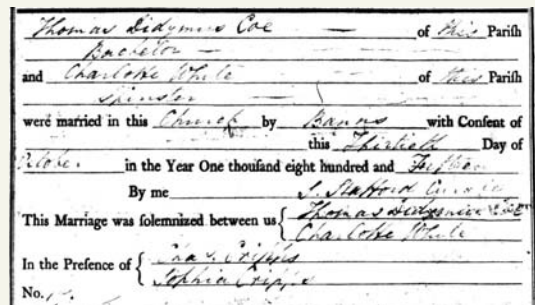 Thomas Didymus Coe — of this Parish
Bachelor —
and Charlotte White — of this Parish
Spinster —
were married in this Church by Banns with Consent of
this Thirtieth Day of
October in the Year One thousand eight hundred and
By me J. Stafford
This Marriage was solemnized between us { Thomas Didymus Coe
Charlotte White
In the Presence of { Chas. Cripps
Sophia Cripps
No.